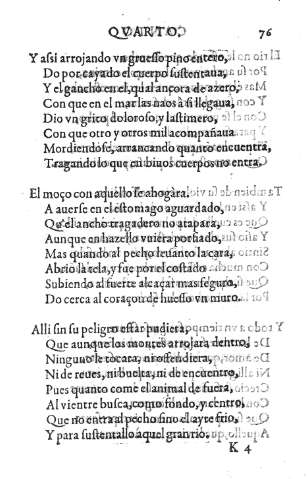 QVARTO. 76
Y assi arrojando vn gruesso pino entero,
Do por cayado el cuerpo sustentaua,
Y el gancho en el, qual ancora de azero,
Con que en el mar las naos à si llegaua,
Dio vn grito doloroso, y lastimero,
Con que otro y otros mil acompañaua
Mordiendose, arrancando quanto encuentra,
Tragando lo que en biuos cuerpos no entra.
El moço con aquello se ahogara.
A auerse en el estomago aguardado,
Qu'el ancho tragadero no atapara,
Aunque en hazello vuiera porfiado,
Mas quando al pecho leuanto la cara,
Abrio la tela, y fue por el costado
Subiendo al fuerte alcaçar mas seguro,
Do cerca al coraçon de huesso vn muro.
Alli sin su peligro estar pudiera,
Que aunque los montes arrojara dentro,
Ninguno le tocara, ni ofendiera,
Ni de reues, ni buelta, ni de encuentro,
Pues quanto come el animal de fuera,
Al vientre busca, como fondo, y centro,
Que no entra al pecho sino el ayre frio,
Y para sustentallo aquel
K 4